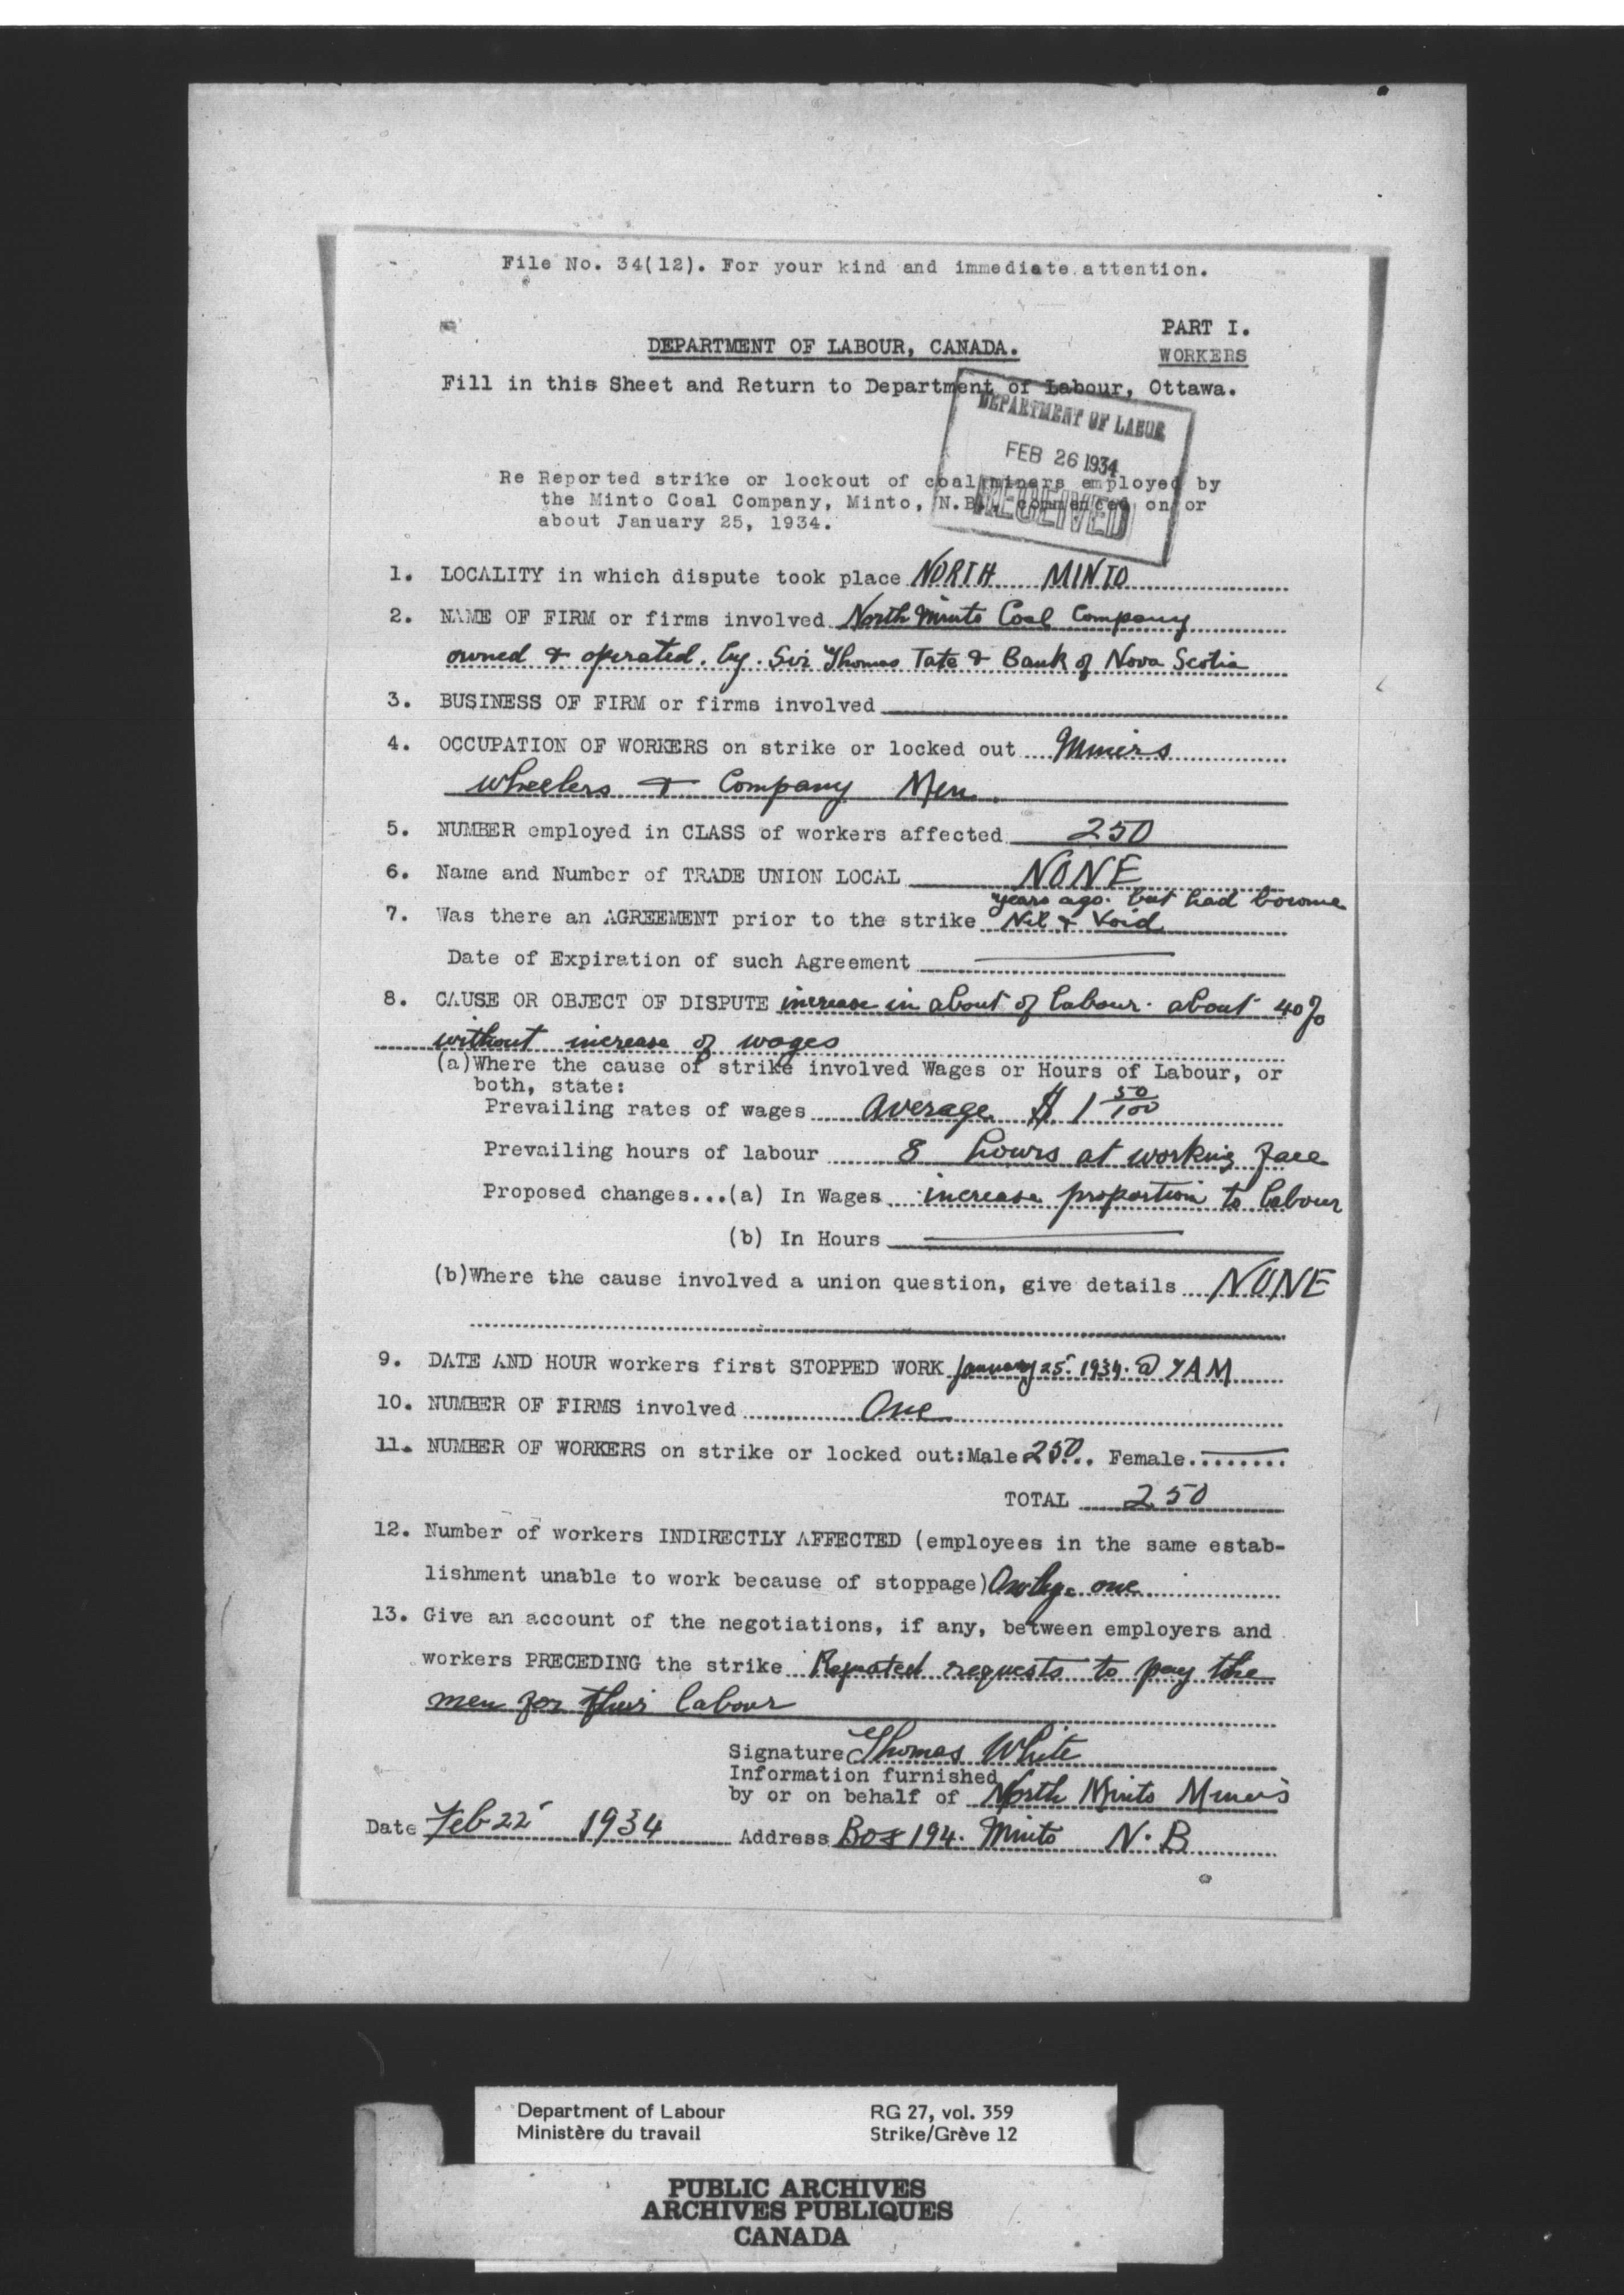 File No. 34(12). For your kind and immediate attention.
PART I.
DEPARTMENT OF LABOUR, CANADA.
WORKERS
Fill in this Sheet and Return to Department of Labour, Ottawa.
DEPARTMENT OF LABOR
FEB 26 1934
RECEIVED
Re Reported strike or lockout of coal miners employed by
the Minto Coal Company, Minto, N.B., commenced on or
about January 25, 1934.
1. LOCALITY in which dispute took place NORTH MINTO
2. NAME OF FIRM or firms involved North Minto Coal Company
owned & operated. by. Sir Thomas Tate & Bank of Nova Scotia
3. BUSINESS OF FIRM or firms involved
4. OCCUPATION OF WORKERS on strike or locked out Miners
wheelers & Company Men.
5. NUMBER employed in CLASS of workers affected 250
6. Name and Number of TRADE UNION LOCAL NONE
years ago. but had become
7. Was there an AGREEMENT prior to the strike Nil & Void
Date of Expiration of such Agreement
8. CAUSE OR OBJECT OF DISPUTE increase in about of labour. about 40%
without increase of wages
(a)Where the cause of strike involved Wages or Hours of Labour, or
both, state:
Prevailing rates of wages average $ 1 50/100
Prevailing hours of labour 8 hours at working face
Proposed changes...(a) In Wages increase proportion to labour
(b) In Hours
(b)Where the cause involved a union question, give details NONE
9. DATE AND HOUR workers first STOPPED WORK January 25. 1934. @ 7 AM
10. NUMBER OF FIRMS involved One
11. NUMBER OF WORKERS on strike or locked out:Male 250... Female........
TOTAL 250
12. Number of workers INDIRECTLY AFFECTED (employees in the same estab-
lishment unable to work because of stoppage) Only one
13. Give an account of the negotiations, if any, between employers and
workers PRECEDING the strike Repeated requests to pay the
men for their labour
Signature Thomas White
Information furnished
by or on behalf of North Minto Miners
Date Feb 22 1934 Address Box 194. Minto N.B
Department of Labour RG 27, vol. 359
Ministère du travail Strike/Grève 12
PUBLIC ARCHIVES
ARCHIVES PUBLIQUES
CANADA